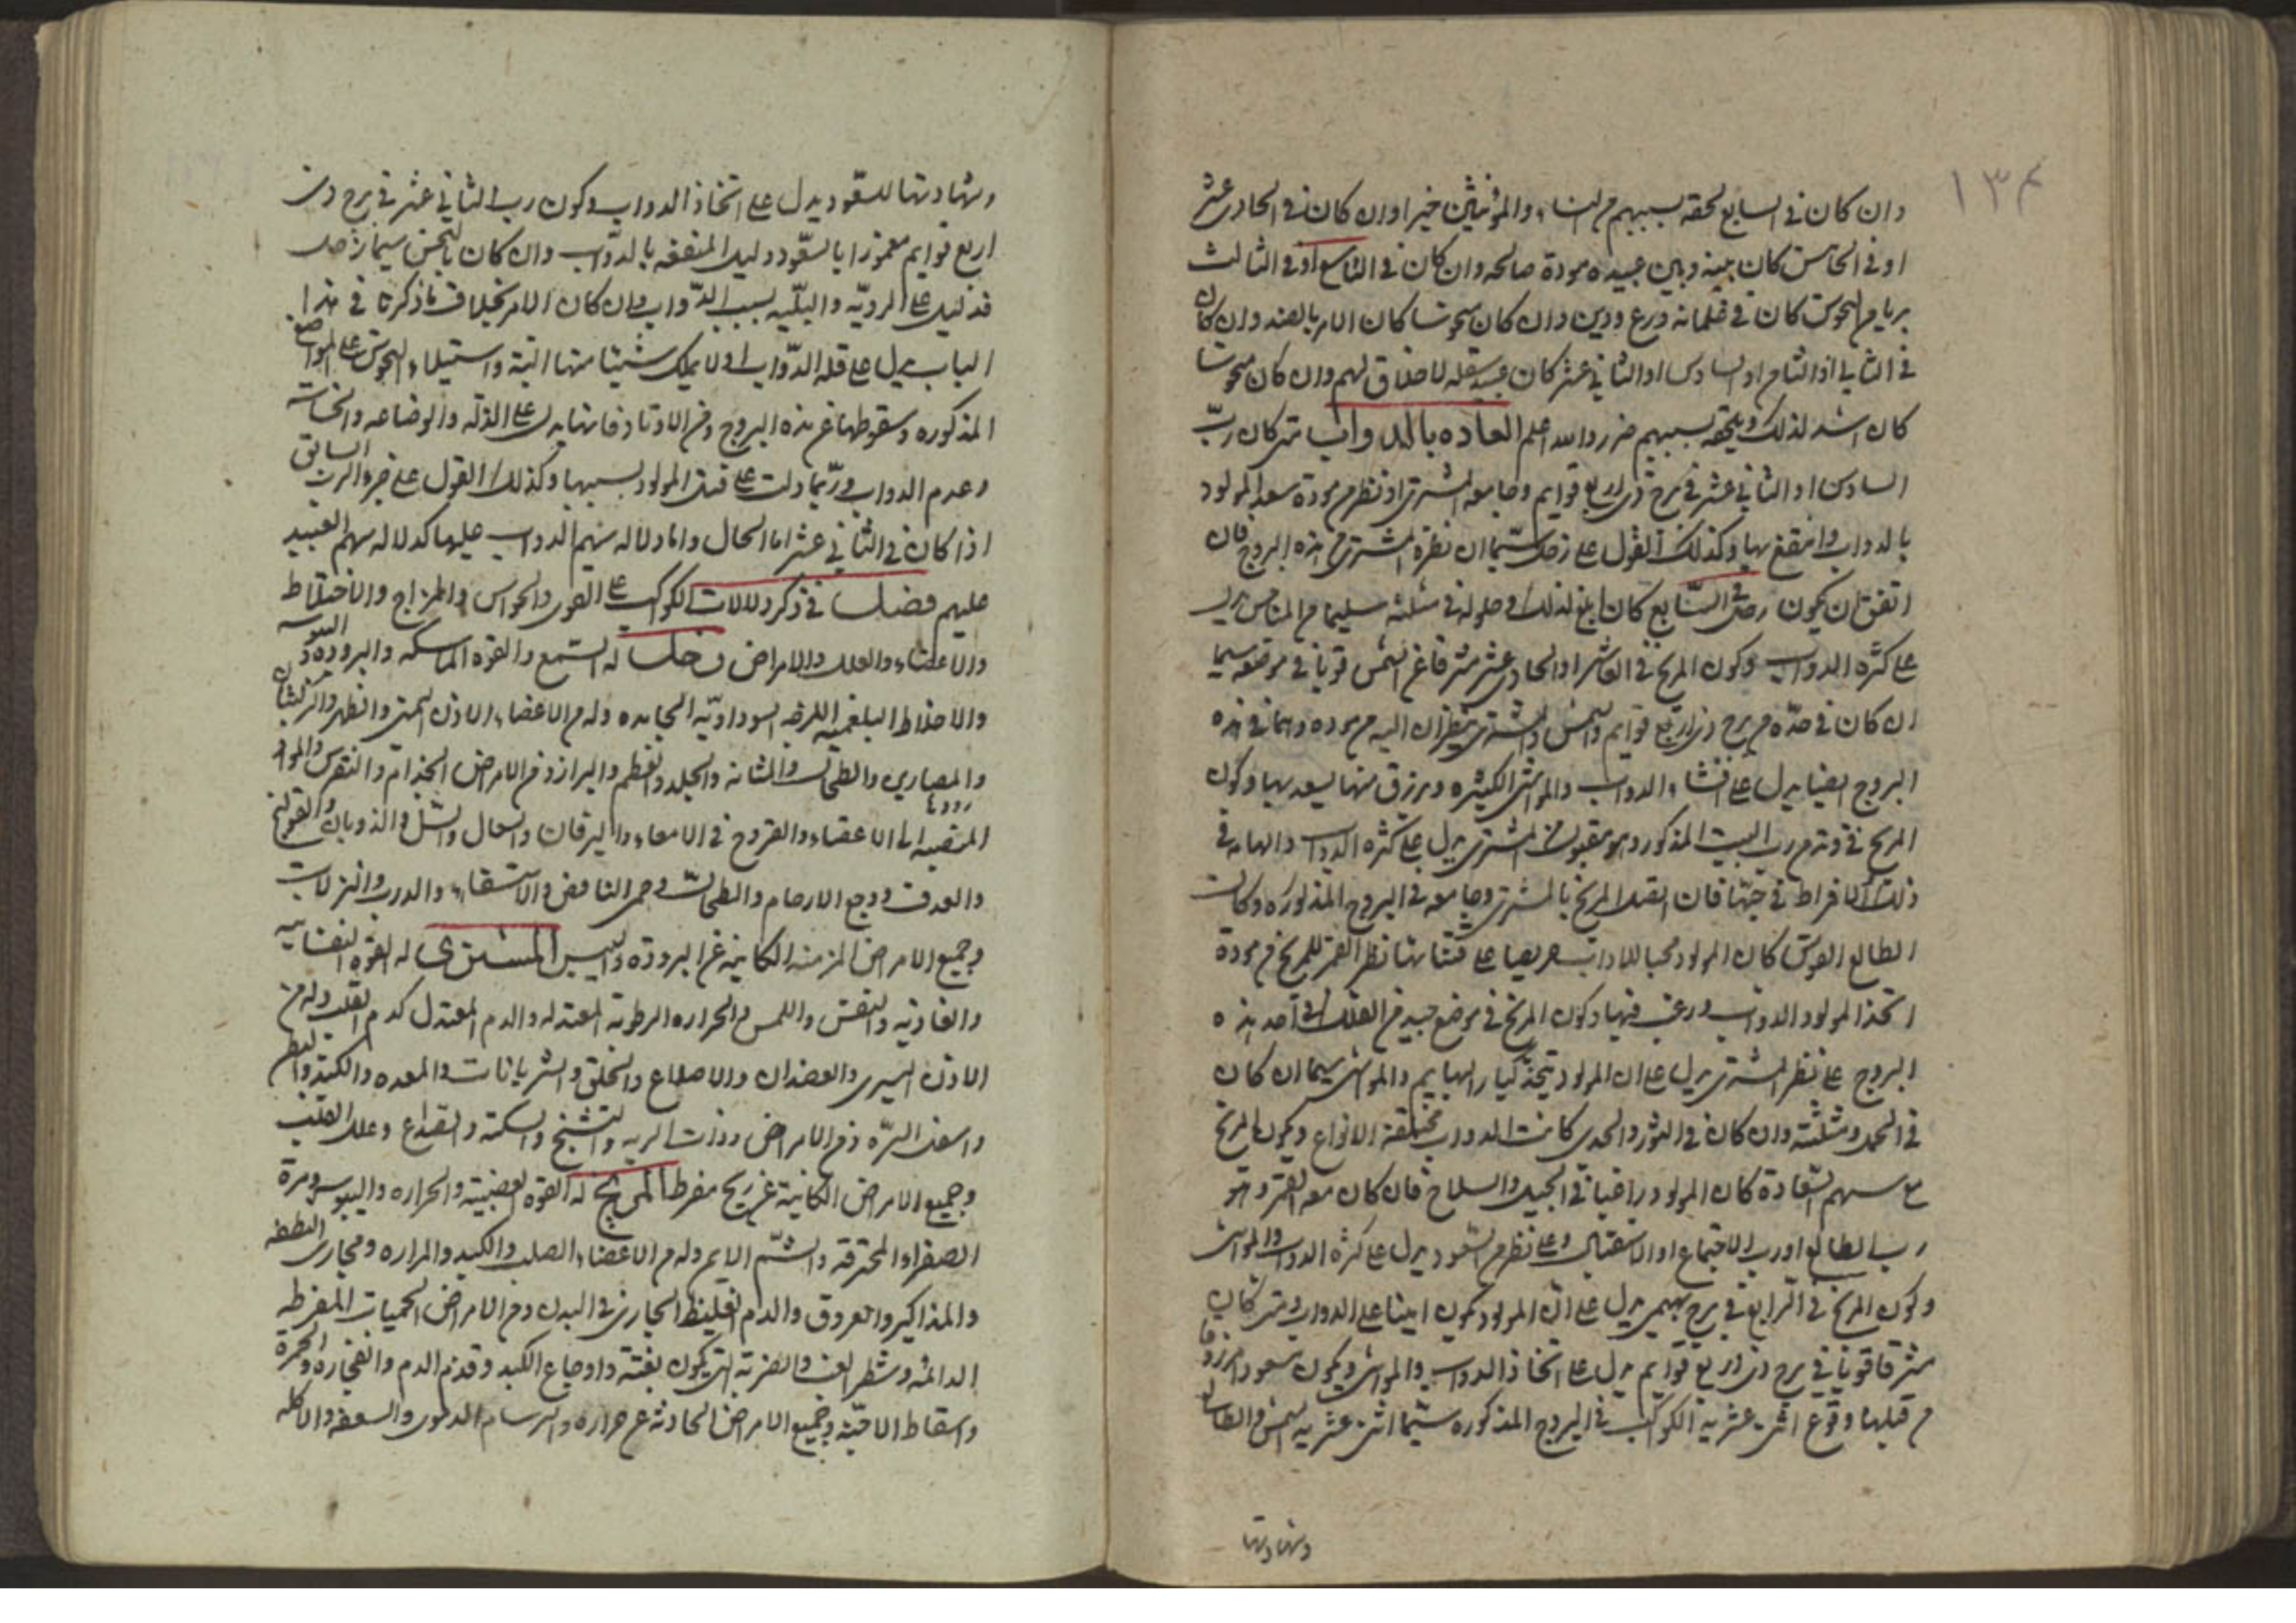 ١٣٤
وان كان في السابع لحقه بسببهم من النساء والمؤنثين خير اوان كان في الحادى عشر
او في الخامس كان بينه وبين عبيده مودة صالحه وان كان في التاسع او في الثالث
بريا من النحوس كان في غلمانه ورع ودين وان كان منحوسا كان الامر بالضد وان كان
في الثاني او الثامن او السادس او الثاني عشر كان عبيد سفله لا خلاق لهم وان كان منحوسا
كان اشد لذلك ويلحقه بسببهم ضرر والله اعلم العاده بالدواب متى كان ربّ
السادس او الثاني عشر في برج ذى اربع قوايم وجامعه المشترى او نظر من مودة سعد المولود
بالدواب وانتفع بها وكذلك القول على زحل سيّما ان نظره المشترى من هذه البروج فان
اتفق ان يكون زحل في السّابع كان ابلغ لذلك وحلوله في مثلثه سليما من المناحس يدل
على كثره الدواب وكون المريخ في العاشر او الحادى عشر مشرقا عن الشمس قويا في موضعه سيما
ان كان في حدّه من برج ذى اربع قوايم والشمس والمشترى ينظران اليه من موده وهما في هذه
البروج ايضا يدل على اقتناء الدواب والمواشى الكثيره ويرزق منها يسعد بها وكون
المريخ في وتد من رب البيت المذكور وهو مقبول من المشترى يدل على كثره الدواب والهامه في
ذلك الافراط في حبّها فان اتصل المريخ بالمشترى وجامعه في البروج المذكوره وكانت
الطالع القوس كان المولود محبا للدواب حريصا على قنياتها نظر القمر للمريخ من مودة
اتخذ المولود الدواب ورغب فيها وكون المريخ في موضع جيد من الفلك في احد هذه
البروج على نظر المشترى يدل على ان المولود يتخذ كبار البهايم والمواشى سيما ان كان
في الحمل ومثلثته وان كان في الثور والجدى كانت الدواب مختلفة الانواع ويكون المريخ
مع سهم السّعادة كان المولود راغبا في الخيل والسلاح فان كان معه القمر وهو
رب الطالع او رب الاجتماع او الاستقبال وعلى نظر من السّعود يدل على كثره الدواب والمواشى
وكون المريخ في الرّابع في برج بهيمى يدل على انّ المولود يكون امينا على الدواب ومتى كان
مشرقا قويا في برج ذى اربع قوايم يدل على اتخاذ الدواب والمواشى ويكون مسعودا مرزوقا
من قبلها وقوع اثنى عشرية الكواكب في البروج المذكوره سيّما اثنى عشرية الشمس والطالع
وشهادتها
وشهادتها للسعّود يدل على اتخاذ الدواب وكون رب الثاني عشر في برج ذى
اربع قوايم معمورا بالسعّود دليل المنفعه بالدوّاب وان كان بالنحس سيما زحل
فدليل على الرديّه والبليّه بسبب الدّواب وان كان الامر بخلاف ما ذكرنا في هذا
الباب يدل على قله الدّواب او لا يملك شيئا منها البتة واستيلاء النحوس على المواضع
المذكوره وسقوطها عن هذه البروج وعن الاوتاد فانها يدل على الذلّه والوضاعه والخساسه
وعدم الدواب وربّما دلت على قتل المولود بسببها وكذلك القول على جزو الربّ السابق
اذا كان في الثاني عشر اما الحال واما دلاله سهم الدواب عليها كدلاله سهم العبيد
عليهم فصل في ذكر دلالات الكواكب على القوى والحواس والمزاج والاخلاط
والاعضاء والعلل والامراض زحل له السّمع والقوة الماسكه والبرودة و اليبوسه
والاخلاط البلغميه اللزجه السوداويّه الجامده وله من الاعضاء الاذن اليمنى والظهر والركبتان
والمصارين والطحال والمثانه والجلد والعظم والبراز ومن الامراض الجذام والنقرس والمواد
المنصبه الى الاعضاء والقروح في الامعاء واليرقان والسعال والسّل والذوبان والقولنج
والعرق ووجع الارحام والطحال وحمى النافض والاستسقاء والدرب والنزلات
وجميع الامراض المزمنه الكاينه عن البرودة واليبس المشترى له القوه النفسانيه
والغاذيه والنفس واللمس والحراره الرطوبة المعتدله والدم المعتدل كدم القلب وله من
الاذن اليسرى والعضدان والاضلاع والحلق والشريانات والمعده والكبد والبطن
واسفل السرّه ومن الامراض وذات الريه والتشنج والسكتة والصّداع وعلل القلب
وجميع الامراض الكاينة عن ريح مفرط المريخ له القوه الغضبيه والحراره واليبوسه ومرة
الصفراء المحترقة والشّم الايمن وله من الاعضاء الصلب والكبد والمراره ومجارى النطفه
والمذاكير والعروق والدم الغليظ الجارى في البدن ومن الامراض الحميات المفرطه
الدائمه وشطر الغب والضربة التى يكون بغتة واوجاع الكبد وقذف الدم وانفجاره والحمرة
واسقاط الاجنّة وجميع الامراض الحادثة عن حراره والبرسام الدموى والسعفه والاكله